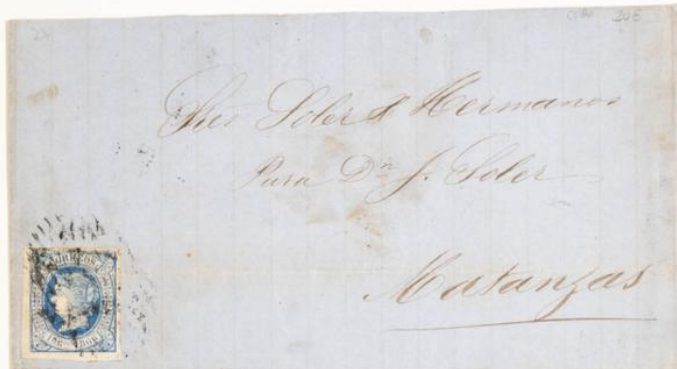 Sres Soler & Hermanos
Para Dn J. Soler
Matanzas